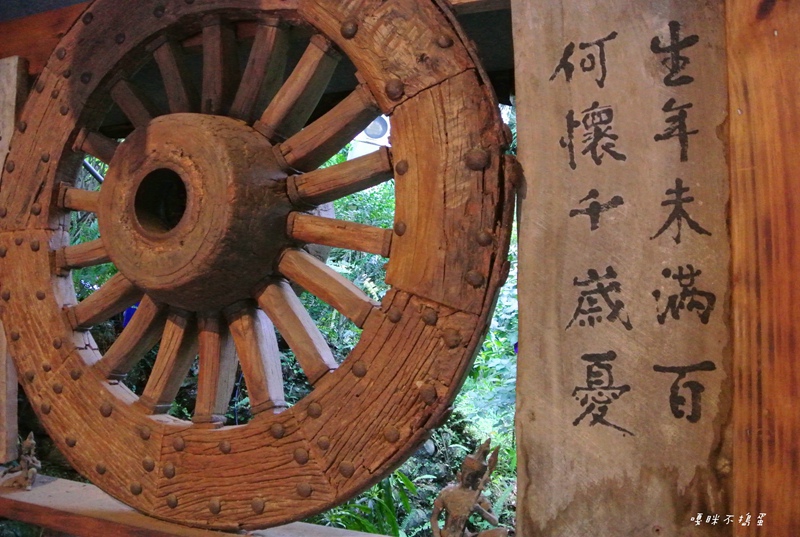 生年未滿百
何懷千歲憂
嘎咪不搗蛋